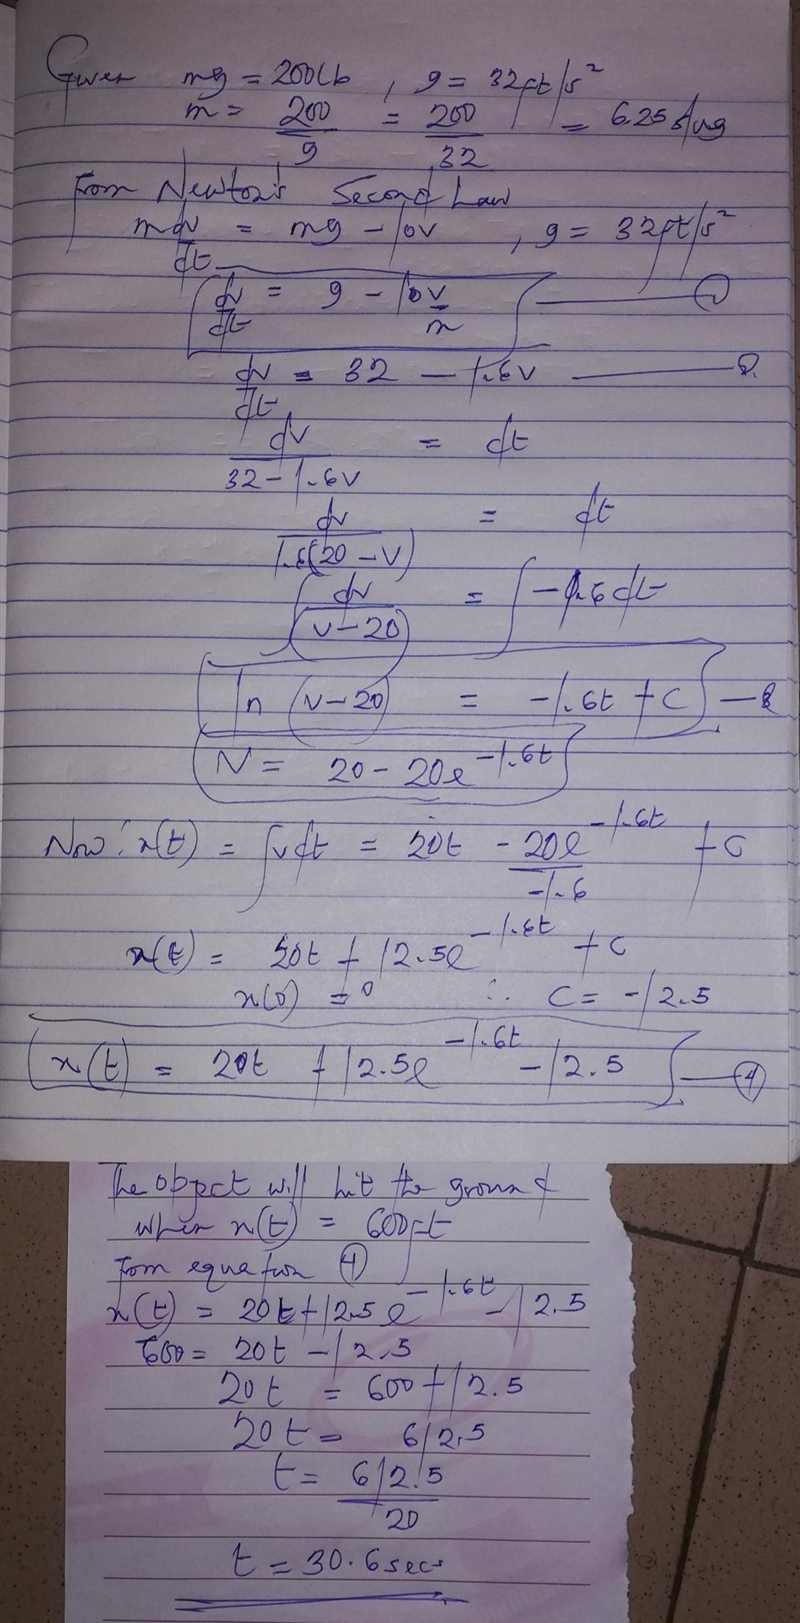 Given mg = 200lb , g = 32ft/s²
m = 200/g = 200/32 = 6.25 slug
From Newton's Second Law
m dv/dt = mg - 10v , g = 32ft/s²
dv/dt = g - 10v/m — 1
dv/dt = 32 - 1.6v — 2
dv/(32 - 1.6v) = dt
dv/(1.6(20 - v)) = dt
∫ dv/(v - 20) = ∫ -1.6dt
ln (v - 20) = -1.6t + C —
V = 20 - 20e^(-1.6t)
Now: x(t) = ∫vdt = 20t - 20e^(-1.6t)/-1.6 + C
x(t) = 20t + 12.5e^(-1.6t) + C
x(0) = 0 ∴ C = -12.5
x(t) = 20t + 12.5e^(-1.6t) - 12.5 — 4
The object will hit the ground
when x(t) = 600ft
from equation 4
x(t) = 20t + 12.5e^(-1.6t) - 12.5
600 = 20t - 12.5
20t = 600 + 12.5
20t = 612.5
t = 612.5/20
t = 30.6 secs